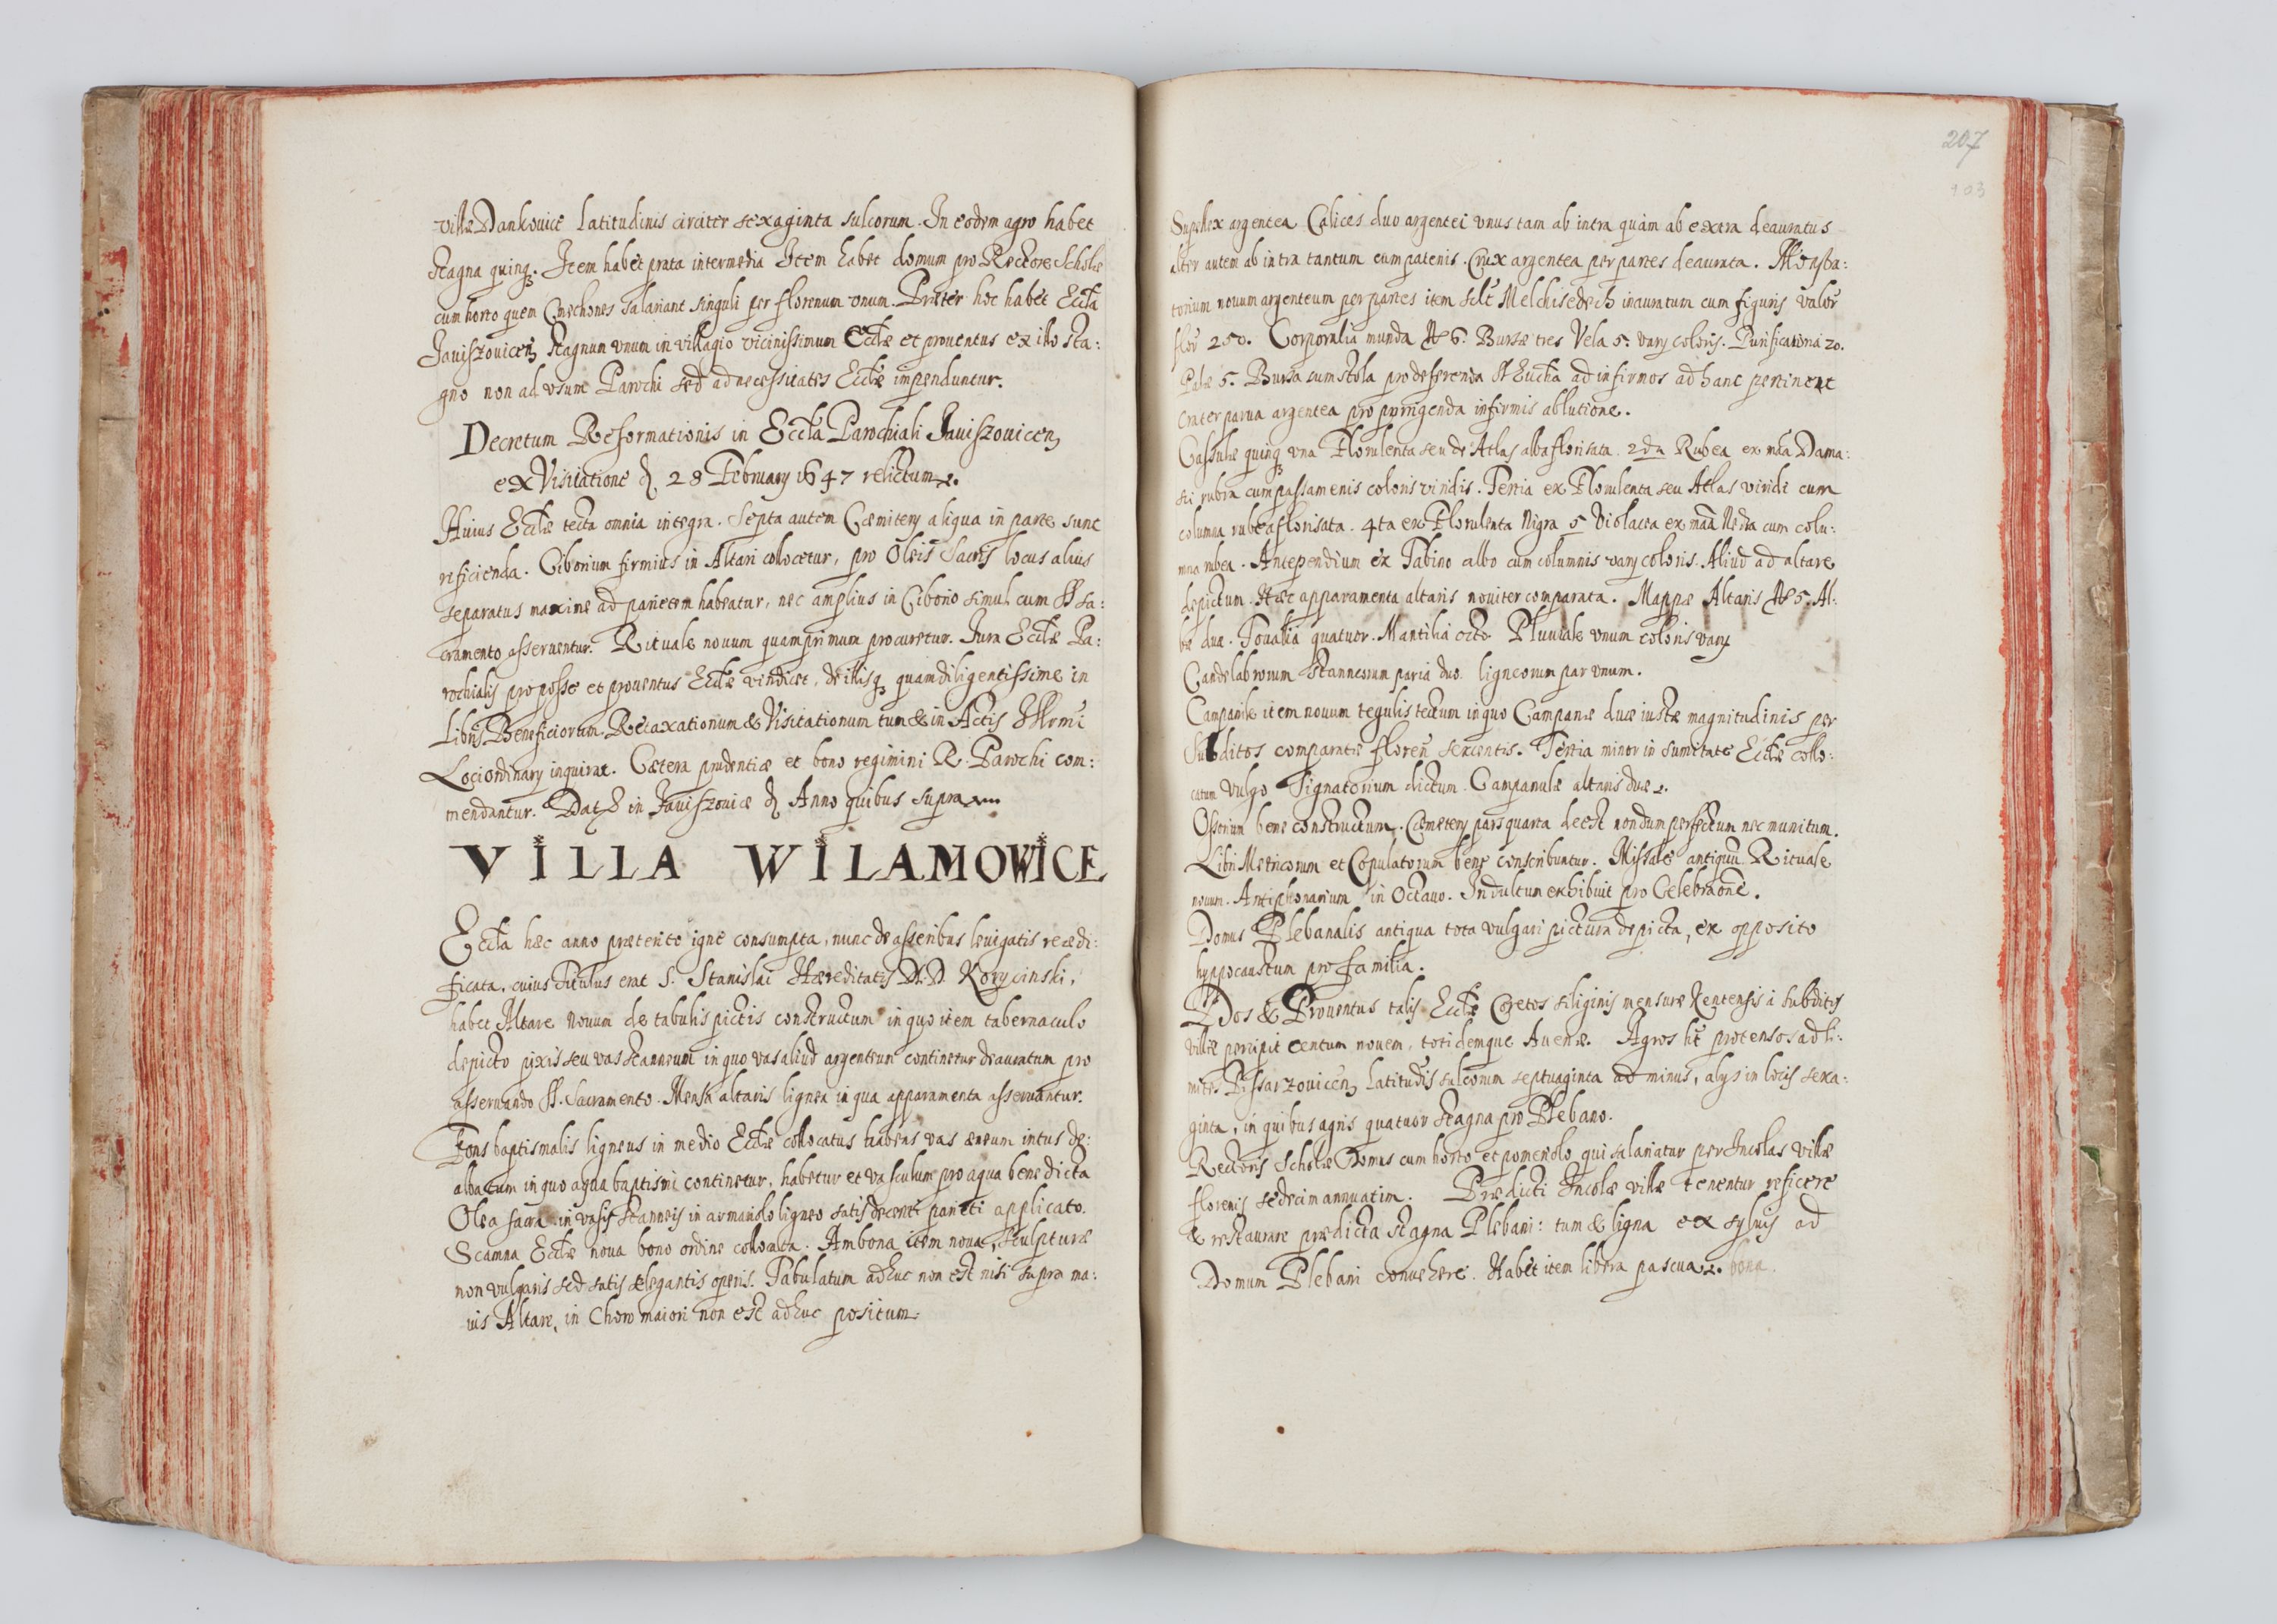 villæ Dankovice latitudinis circiter sexaginta sulcorum. In eodem agro habet
stagna quinq. Item habet prata intermedia Item habet domum pro Rectore Scholæ
cum horto quem Cmethones salariant singuli per florenum unum. Præter hoc habet Eccla
Jawiszovicen stagnum vnum in villagio vicinissimum Ecclæ et prouentus ex illo sta:
gno non ad vsum Parochi sed ad necessitates Ecclæ impenduntur.
Decretum Reformationis in Eccla Parochiali Jawiszouicen
ex Visitatione d. 28 February 1647 relictum
Huius Ecclæ tecta omnia integra. Septa autem Cæmitery aliqua in parte sunt
reficienda. Ciborium firmius in Altari collocetur, pro Oleis Sacris locus alius
separatus maxime ad parietem habeatur, nec amplius in Ciborio simul cum SS sa:
cramento asseruentur. Rituale nouum quamprimum procuretur. Jura Ecclæ Pa:
rochialis pro posse et prouentus Ecclæ vindicet, de illisq quamdiligentissime in
Libris Beneficiorum Retaxationum & Visitationum tum & in Actis
Loci ordinary inquirat. Cætera prudentiæ et bono regimini R. Parochi com:
mendantur. Dat in Jawiszouicæ d Anno quibus supra
VILLA WILAMOWICE
Eccla hæc anno præterito igne consumpta, nunc de asseribus leuigatis reædi:
ficata, cuius Titulus erat S. Stanislai Hæreditatis D. D. Korycinski,
habet Altare nouum de tabulis pictis constructum in quo item tabernaculo
depicto pixis seu vas stanneum in quo vas aliud argenteum continetur deauratum pro
asseruando SS. Sacramento. Mensa altaris lignea in qua apparamenta asseruantur.
Fons baptismalis ligneus in medio Ecclæ collocatus habens vas æneum intus de:
albatum in quo aqua baptismi continetur, habetur et vasculum pro aqua benedicta
Olea sacra in vasis stanneis in armariolo ligneo satis decenti parieti applicato.
Scamna Ecclæ noua bono ordine collocata. Ambona item noua, sculpturæ
non vulgaris sed satis elegantis operis. Tabulatum adhuc non est nisi supra ma:
ius Altare, in Choro maiori non est adhuc positum.
207
103
Supellex argentea Calices duo argentei vnus tam ab intra quam ab extra deauratus
alter autem ab intra tantum cum patenis. Crux argentea per partes deaurata. Monstra:
torium nouum argenteum per partes item Melchisedech inauratum cum figuris valor
flor 250. Corporalia munda No 6. Bursæ tres Vela 5. vary coloris. Purificatoria 20.
Palæ 5. Bursa cum stola pro deferenda SS Euchta ad infirmos ad hanc pertinent
crater parua argentea pro porrigenda infirmis ablutione.
Casulæ quinq vna Florulenta seu de Atlas alba florisata. 2da Rubea ex mâa Dama:
sci rubra cum passamenis coloris viridis. Tertia ex Florulenta seu Atlas viridi cum
columna rubea florisata. 4ta ex Florulenta Nigra 5 Violacea ex mâa cum colu:
mna rubea. Antependium ex Tabino albo cum columnis vary coloris. Aliud ad altare
depictum. Hæc apparamenta altaris nouiter comparata. Mappæ Altaris No 5. Al:
bæ duæ. Toualia quatuor. Mantilia octo Pluuiale vnum coloris vary
Candelabrorum stanneorum paria duo ligneorum par vnum.
Campanile item nouum tegulis tectum in quo Campanæ duæ iustæ magnitudinis per
Subditos comparatæ floren sexcentis. Tertia minor in sumitate Ecclæ collo:
catum vulgo Signatorium dictum. Campanulæ altaris duæ
Ossorium bene constructum. Cæmetery pars quarta deest nondum perfectum nec munitum.
Libri Metricorum et Copulatorum bene conscribuntur. Missale antiquu Rituale
nouum. Antiphonarium in Octauo. Indultum exhibuit pro Celebraone.
Domus Plebanalis antiqua tota vulgari pictura depicta, ex opposito
hyppocaustum pro familia.
Dos & Prouentus talis Ecclæ Coretos siliginis mensuræ Kentensis a subditis
villæ percipit centum nouem, totidemque Auenæ. Agros ht protensos ad li:
mites Pissarzouicen latitudis sulcorum septuaginta ad minus, alys in locis sexa:
ginta, in quibus agris quatuor stagna pro Plebano.
Rectoris Scholæ Domus cum horto et pomeriolo qui salariatur per Incolas villæ
florenis sedecim annuatim. Prædicti Incolæ villæ tenentur reficere
& restaurare prædicta stagna Plebani: tum & ligna ex syluis ad
Domum Plebani conuehere. Habet item libera pascua bona.